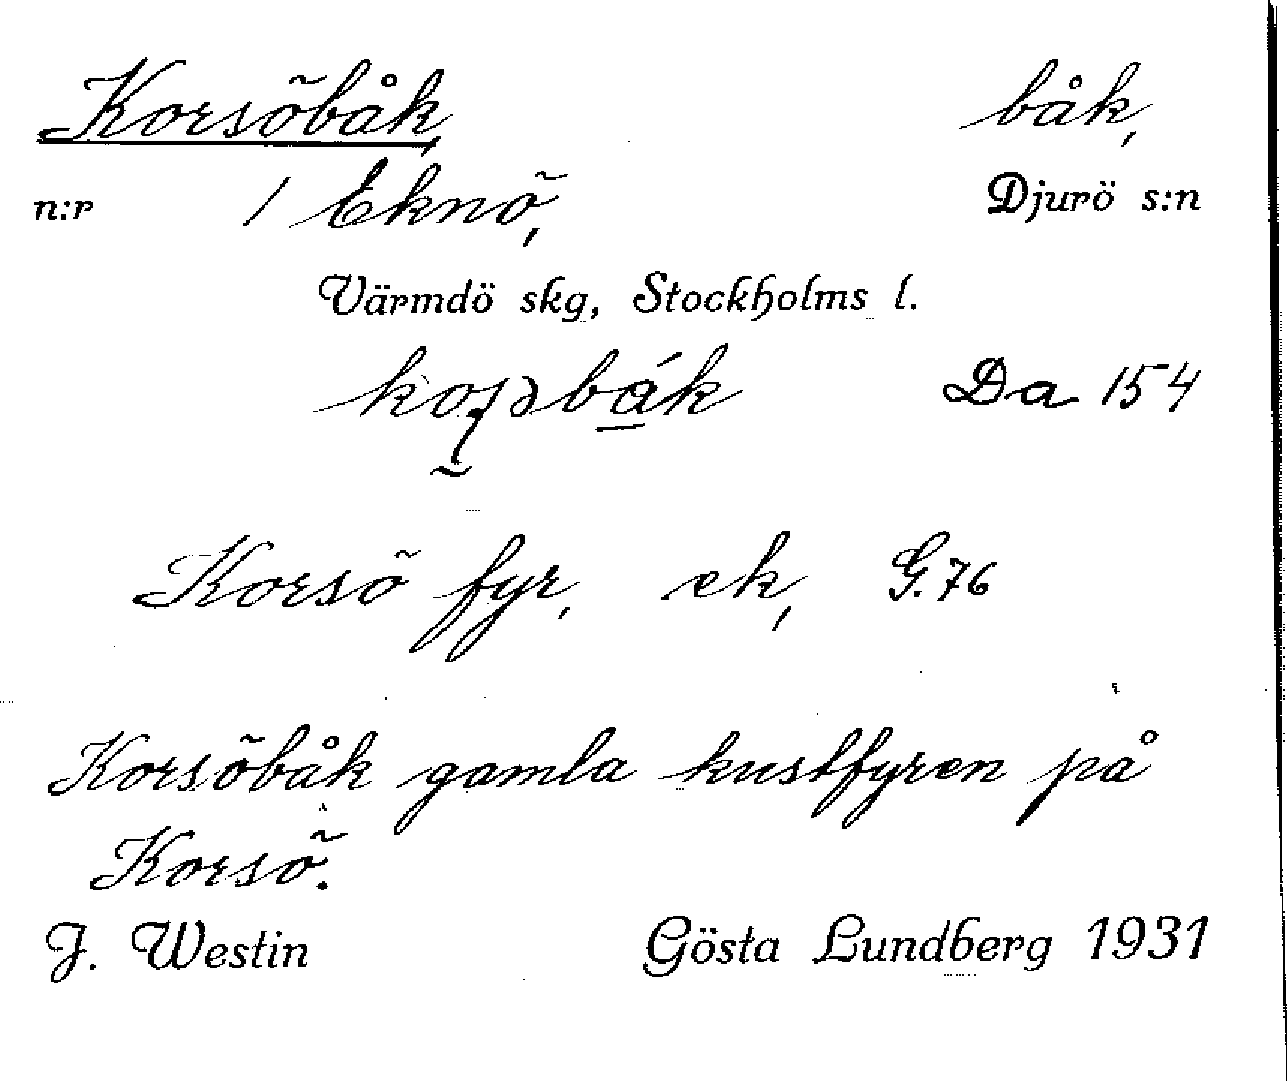 Korsöbåk, båk,
n:r 1 Eknö, Djurö s:n
Värmdö skg, Stockholms l.
Da 154
Korsö fyr, ek, G.76
Korsöbåk gamla kustfyren på
Korsö.
J. Westin Gösta Lundberg 1931